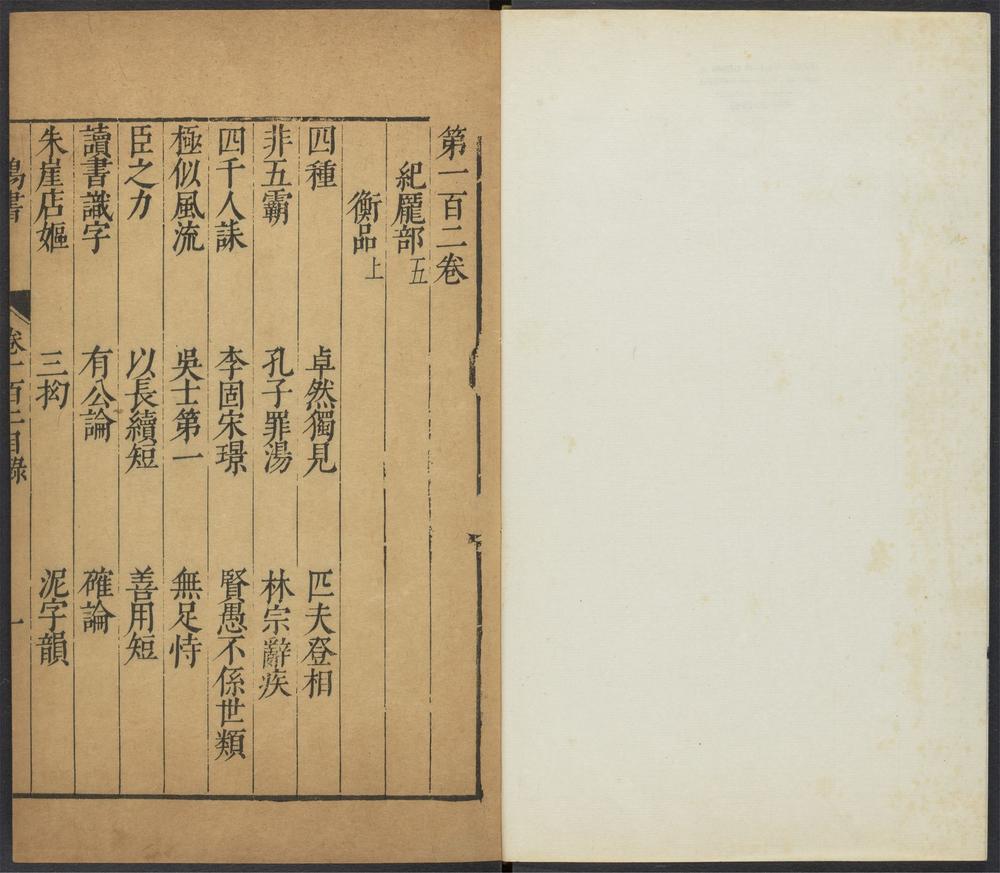 第一百二卷
紀龎部五
衡品上
四種 卓然獨見 匹夫登相
非五霸 孔子罪湯 林宗辭疾
四千人誅 李固宋璟 賢愚不係世類
極似風流 吳士第一 無足恃
臣之力 以長續短 善用短
讀書識字 有公論 確論
朱崖店嫗 三拗 泥字韻
鴻書 卷一百二目錄 一